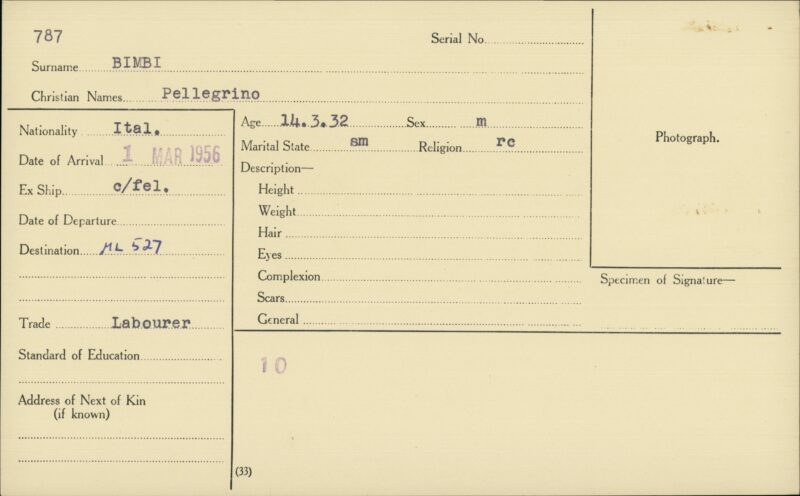 787
Serial No.
Surname BIMBI
Christian Names Pellegrino
Nationality Ital.
Date of Arrival 1 MAR 1956
Ex Ship c/fel.
Date of Departure
Destination ML 527
Trade Labourer
Standard of Education
Address of Next of Kin
(if known)
Age 14.3.32 Sex m
Marital State sm Religion rc
Description—
Height
Weight
Hair
Eyes
Complexion
Scars
General
10
(33)
Photograph.
Specimen of Signature—